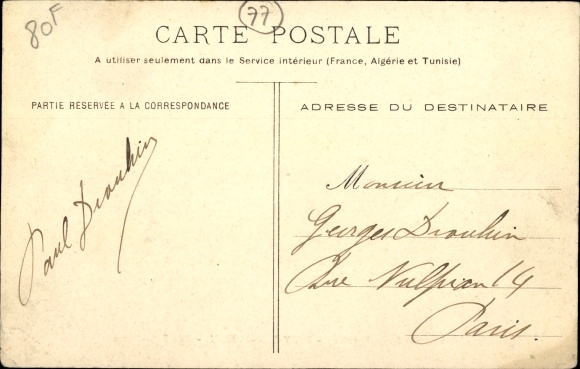 80F
77
CARTE POSTALE
A utiliser seulement dans le Service intérieur (France, Algérie et Tunisie)
PARTIE RÉSERVÉE A LA CORRESPONDANCE
ADRESSE DU DESTINATAIRE
Paul Drouhin
Monsieur
Georges Drouhin
Rue Vulpian 14
Paris.